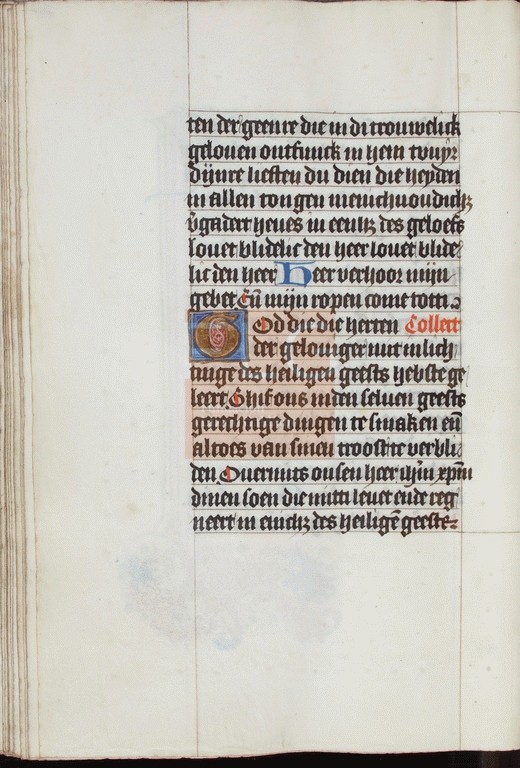 ten der geenre die in di trouwelick
gelouen ontfunck in hem tvuyr
dijnre liefften du dien die heyden
in allen tongen menichuoudich;
v̄gadert heues in eenich; des geloefs
louet blidelic den heer louet blide
lic den heer Heer verhoor mijn
gebet Eñ mijn ropen come tot ti
God die die herten Collect
der geloniger mit inlich
tinge des heiligen geests hebste ge
leert Ghif ons inden seluen geests
gerechtige dingen te smaken eñ
altoes van sinen troost te verbli
den Ouermits onsen heer ihm̄ xpm̄
dinen soen die mitti leuet ende reg
neert in enich; des heiligē geests